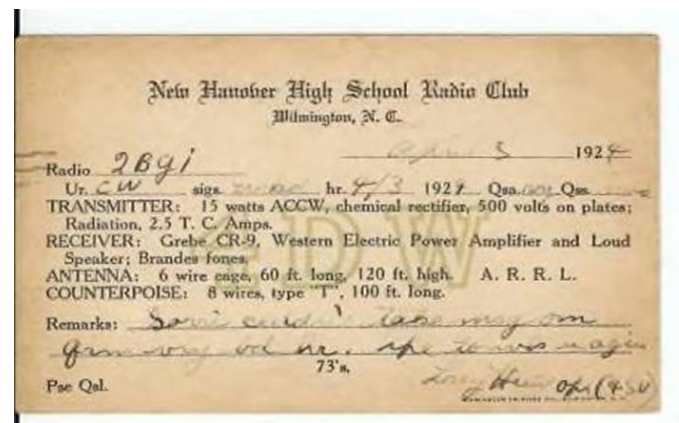 New Hanover High School Radio Club
Wilmington, N. C.
April 5 1924
Radio 2BGI
Ur. CW sigs hr. 4/3 1924 Qsa Qss
TRANSMITTER: 15 watts ACCW, chemical rectifier, 500 volts on plates;
Radiation, 2.5 T. C. Amps.
RECEIVER: Grebe CR-9, Western Electric Power Amplifier and Loud
Speaker; Brandes fones.
ANTENNA: 6 wire cage, 60 ft. long, 120 ft. high. A. R. R. L.
COUNTERPOISE: 8 wires, type "T", 100 ft. long.
Remarks: take msg om
Qrm vry hr. to wrk u agn
73's,
Pse Qsl. Opr